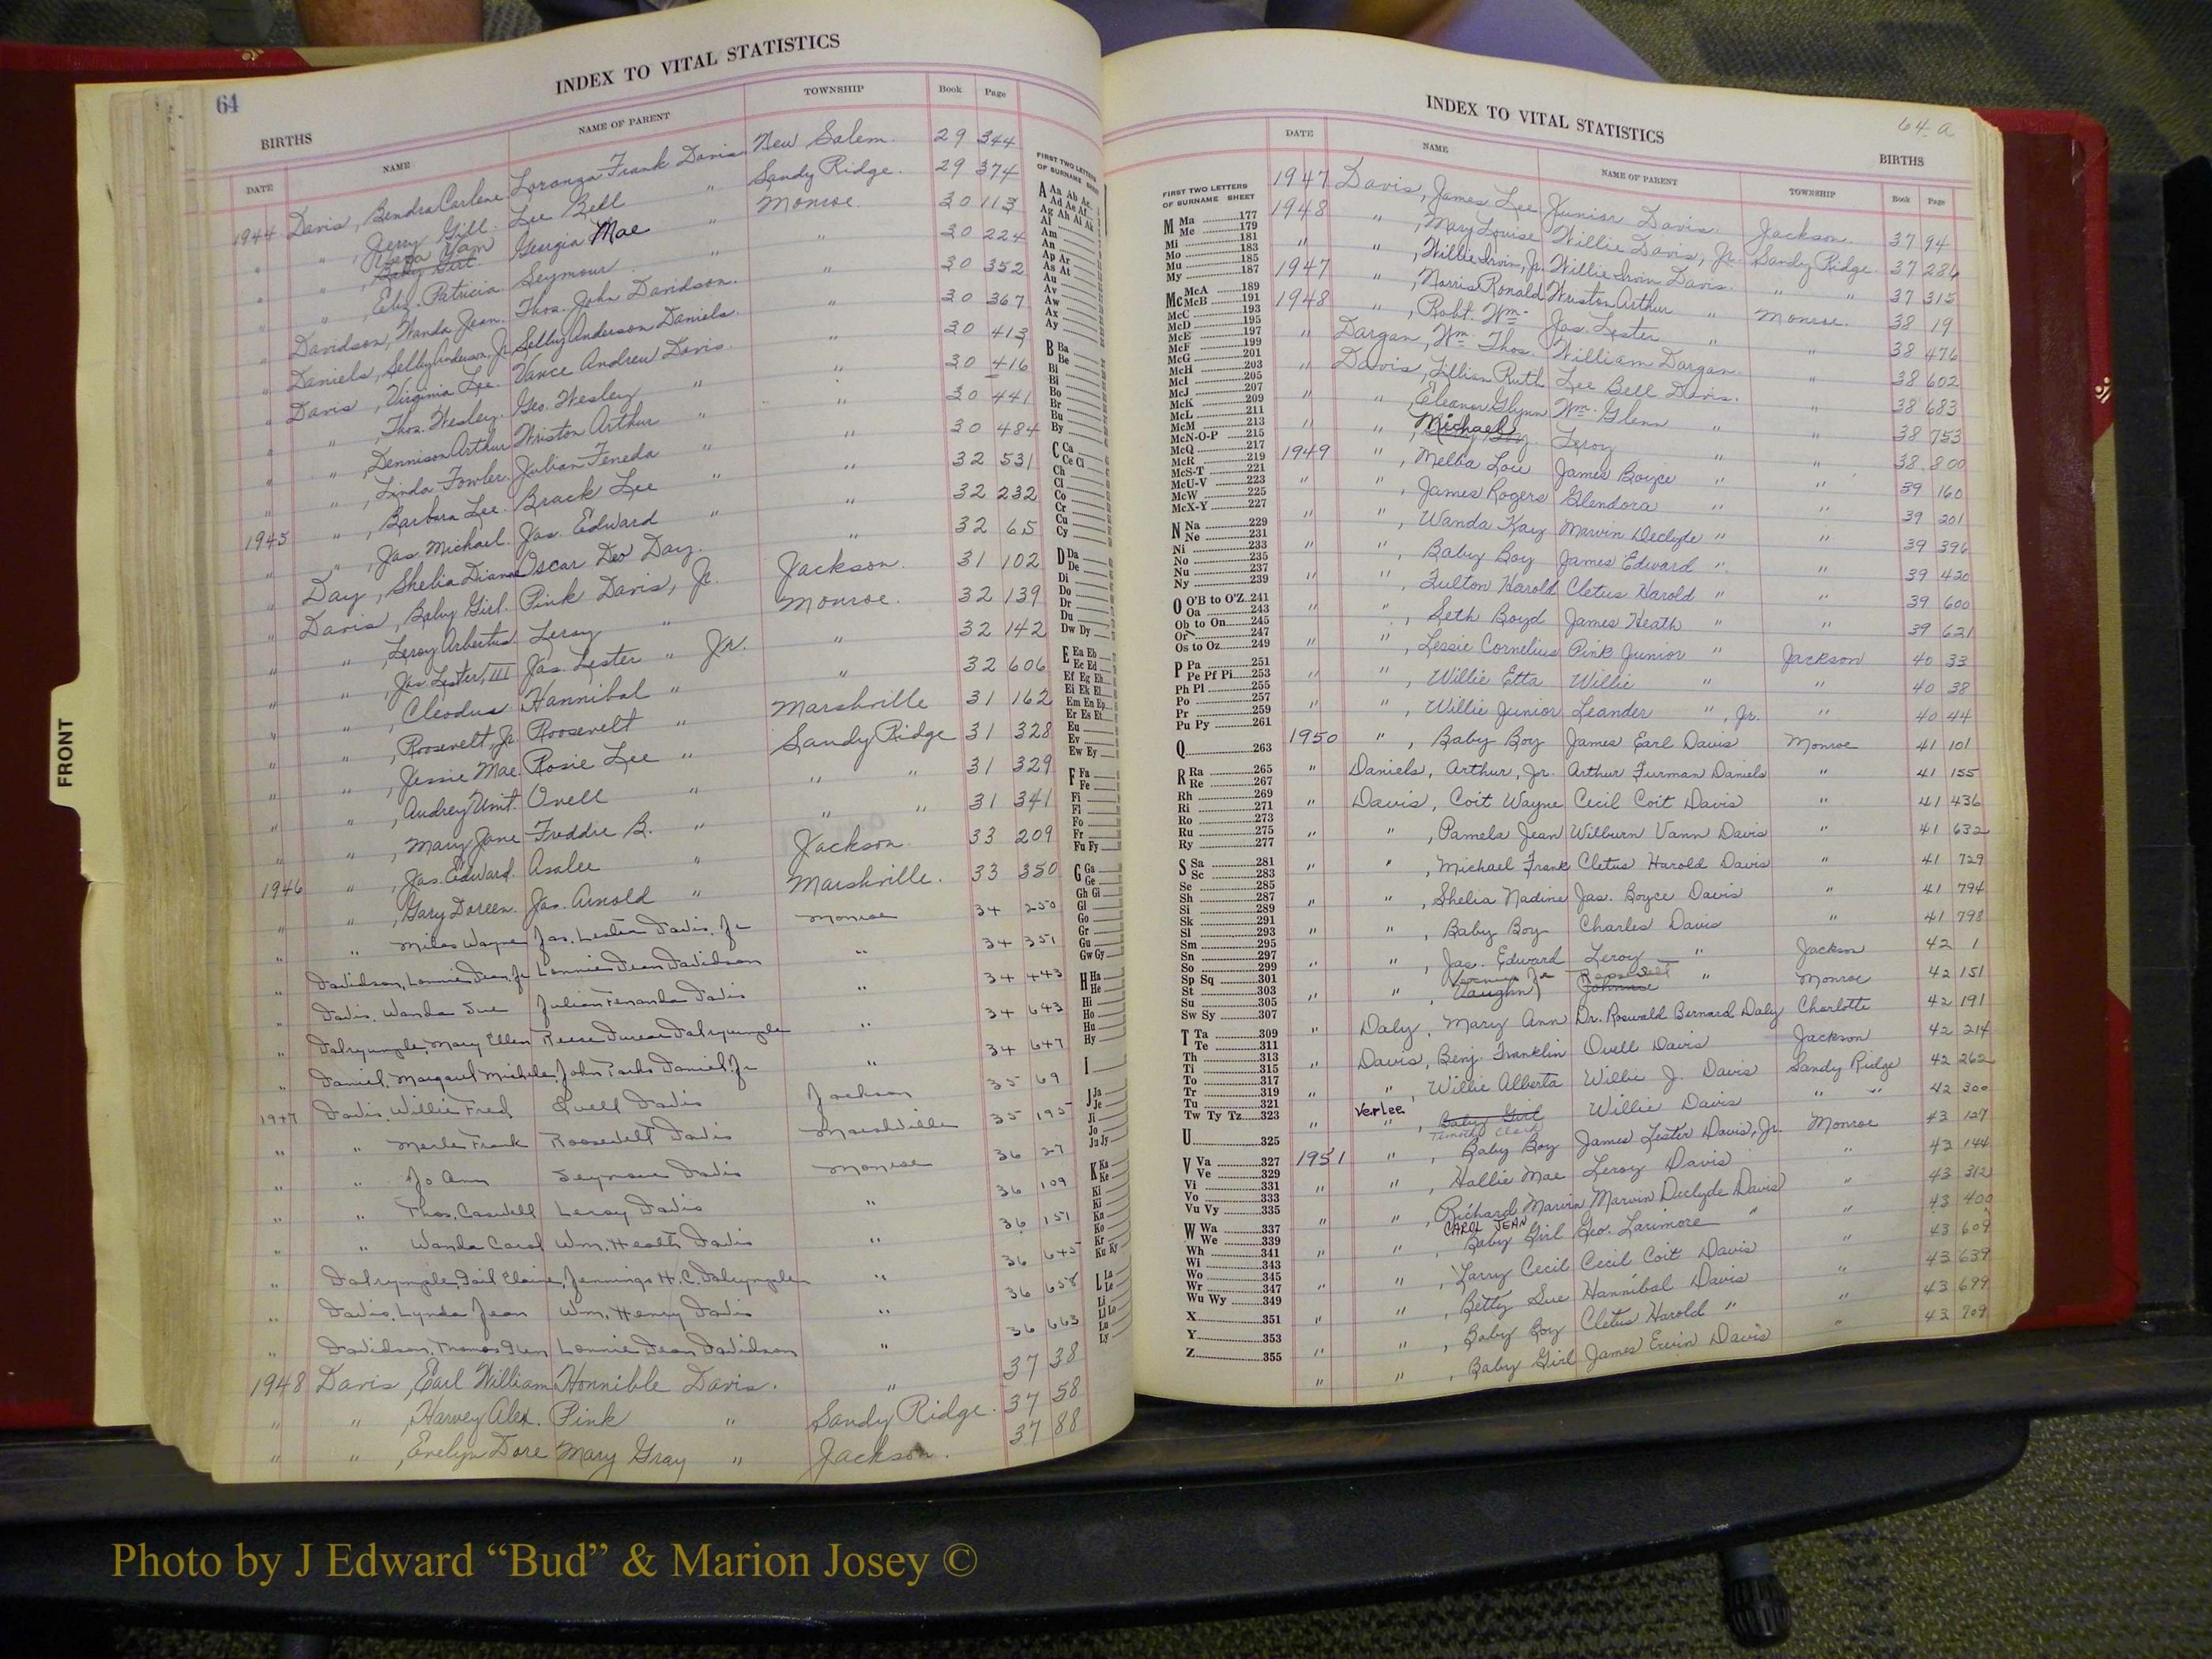 64
INDEX TO VITAL STATISTICS
BIRTHS
DATE NAME NAME OF PARENT TOWNSHIP Book Page
1944 Davis, Bendra Carlene Loranza Frank Davis New Salem. 29 344
" " , Jerry Gill. Lee Bell " Sandy Ridge. 29 374
" " , Baby Girl Georgia Mae " Monroe. 30 113
" " , Eliz. Patricia Seymour " " 30 224
" Davidson, Wanda Jean. Thos. John Davidson. " 30 352
" Daniels, Selby Anderson, Jr. Selby Anderson Daniels. " 30 367
" Davis, Virginia Lee. Vance Andrew Davis. " 30 413
" " , Thos. Wesley. Geo. Wesley " " 30 416
" " , Dennison Arthur Wriston Arthur " " 30 441
" " , Linda Fowler. Julian Feneda " " 30 484
1945 " , Barbara Lee. Brack Lee " " 32 531
" " , Jas. Michael. Jas. Edward " " 32 232
" Day, Shelia Dianne Oscar Deo Day. " 32 65
" Davis, Baby Girl. Pink Davis, Jr. Jackson. 31 102
" " , Leroy Arbertus Leroy " Monroe. 32 139
" " , Jas. Lester, III Jas. Lester " Jr. " 32 142
" " , Cleodus Hannibal " " 32 606
" " , Roosevelt, Jr. Roosevelt " Marshville 31 162
" " , Jessie Mae. Rosie Lee " Sandy Ridge 31 328
" " , Audrey Unit. Ovell " " " 31 329
" " , Mary Jane Freddie B. " " " 31 341
1946 " , Jas. Edward. Asalee " Jackson. 33 209
" " , Gary Doreen. Jas. Arnold " Marshville. 33 350
" " Miles Wayne Jas. Lester Davis, Jr Monroe 34 250
" Davidson, Lonnie Dean, Jr Lonnie Dean Davidson " 34 351
" Davis, Wanda Sue Julian Fenanda Davis " 34 443
" Dalrymple, Mary Ellen Reece Dalrymple " 34 643
" Daniel, Margaret Michele, John Parks Daniel, Jr " 34 647
1947 Davis, Willie Fred Ovell Davis Jackson 35 69
" " Merle Frank Roosevelt Davis Marshville 35 195
" " Jo Ann Seymour Davis Monroe 36 27
" " Thos. Caswell Leroy Davis " 36 109
" " Wanda Carol Wm. Heath Davis " 36 151
" Dalrymple, Gail Elaine, Jennings H. C. Dalrymple " 36 645
" Davis, Lynda Jean Wm. Henry Davis " 36 658
" Davidson, Thomas Glen Lonnie Dean Davidson " 36 663
1948 Davis, Earl William Honnible Davis. " 37 38
" " , Harvey Alex. Pink " Sandy Ridge. 37 58
" " , Evelyn Dore Mary Gray " Jackson. 37 88
FRONT
FIRST TWO LETTERS
OF SURNAME SHEET
A Aa Ab Ac
Ad Ae Af
Ag Ah Ai Ak
Al
Am
An
Ap Ar
As At
Au
Av
Aw
Ax
Ay
B Ba
Be
Bi
Bl
Bo
Br
Bu
By
C Ca
Ce Ci
Ch
Cl
Co
Cr
Cu
Cy
D Da
De
Di
Do
Dr
Du
Dw Dy
E Ea Eb
Ec Ed
Ef Eg Eh
Ei Ek El
Em En Ep
Er Es Et
Eu
Ev
Ew Ey
F Fa
Fe
Fi
Fl
Fo
Fr
Fu Fy
G Ga
Ge
Gh Gi
Gl
Go
Gr
Gu
Gw Gy
H Ha
He
Hi
Ho
Hu
Hy
I
J Ja
Je
Ji
Jo
Ju Jy
K Ka
Ke
Ki
Kl
Kn
Ko
Kr
Ku Ky
L La
Le
Li
Ll Lo
Lu
Ly
64 a
INDEX TO VITAL STATISTICS
BIRTHS
DATE NAME NAME OF PARENT TOWNSHIP Book Page
FIRST TWO LETTERS
OF SURNAME SHEET
M Ma 177
Me 179
Mi 181
Mo 183
Mu 185
My 187
Mc McA 189
McB 191
McC 193
McD 195
McE 197
McF 199
McG 201
McH 203
McI 205
McJ 207
McK 209
McL 211
McM 213
McN-O-P 215
McQ 217
McR 219
McS-T 221
McU-V 223
McW 225
McX-Y 227
N Na 229
Ne 231
Ni 233
No 235
Nu 237
Ny 239
O O'B to O'Z 241
Oa 243
Ob to On 245
Or 247
Os to Oz 249
P Pa 251
Pe Pf Pi 253
Ph Pl 255
Po 257
Pr 259
Pu Py 261
Q 263
R Ra 265
Re 267
Rh 269
Ri 271
Ro 273
Ru 275
Ry 277
S Sa 281
Sc 283
Se 285
Sh 287
Si 289
Sk 291
Sl 293
Sm 295
Sn 297
So 299
Sp Sq 301
St 303
Su 305
Sw Sy 307
T Ta 309
Te 311
Th 313
Ti 315
To 317
Tr 319
Tu 321
Tw Ty Tz 323
U 325
V Va 327
Ve 329
Vi 331
Vo 333
Vu Vy 335
W Wa 337
We 339
Wh 341
Wi 343
Wo 345
Wr 347
Wu Wy 349
X 351
Y 353
Z 355
1947 Davis, James Lee Junior Davis. Jackson. 37 94
1948 " , Mary Louise Willie Davis, Jr. Sandy Ridge. 37 286
" " , Willie Irvin, Jr. Willie Irvin Davis. " " 37 315
1947 " , Norris Ronald Wriston Arthur " Monroe. 38 19
1948 " , Robt. Wm. Jas. Lester " " 38 476
" Dargan, Wm. Thos. William Dargan. " 38 602
" Davis, Lillian Ruth Lee Bell Davis. " 38 683
" " , Eleanor Glynn Wm. Glenn " " 38 753
" " , Michael Leroy " " 38 800
1949 " , Melba Lou James Boyce " " 39 160
" " , James Rogers Glendora " " 39 201
" " , Wanda Kay Marvin Declyde " " 39 396
" " , Baby Boy James Edward " " 39 420
" " , Fulton Harold Cletus Harold " " 39 600
" " , Seth Boyd James Heath " " 39 621
" " , Lessie Cornelius Pink Junior " Jackson 40 33
" " , Willie Etta Willie " " 40 38
" " , Willie Junior Leander " , Jr. " 40 44
1950 " , Baby Boy James Earl Davis Monroe 41 101
" Daniels, Arthur, Jr. Arthur Furman Daniels " 41 155
" Davis, Coit Wayne Cecil Coit Davis " 41 436
" " , Pamela Jean Wilburn Vann Davis " 41 632
" " , Michael Frank Cletus Harold Davis " 41 729
" " , Shelia Nadine Jas. Boyce Davis " 41 794
" " , Baby Boy Charles Davis " 41 798
" " , Jas. Edward Leroy " Jackson 42 1
Jr Roosevelt
" " , Vaughn Johnnie " Monroe 42 151
" Daly, Mary Ann Dr. Roswald Bernard Daly Charlotte 42 191
" Davis, Benj. Franklin Ovell Davis Jackson 42 214
" " , Willie Alberta Willie J. Davis Sandy Ridge 42 262
Verlee
" " , Baby Girl Willie Davis " " 42 300
Timothy Clark
1951 " , Baby Boy James Lester Davis, Jr. Monroe 43 127
" " , Hallie Mae Leroy Davis " 43 144
" " , Richard Marvin Marvin Declyde Davis " 43 312
CAROL JEAN
" " , Baby Girl Geo. Larimore " " 43 400
" " , Larry Cecil Cecil Coit Davis " 43 609
" " , Betty Sue Hannibal Davis " 43 639
" " , Baby Boy Cletus Harold " " 43 699
" " , Baby Girl James Ervin Davis " 43 709
Photo by J Edward “Bud” & Marion Josey ©